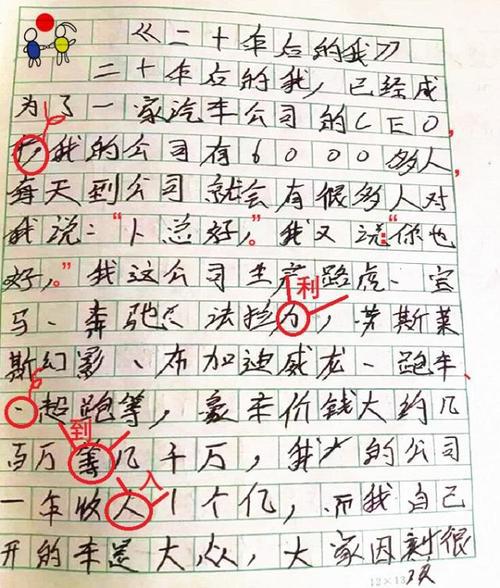 《二十年后的我》
二十年后的我,已经成
为了一家汽车公司的CEO,
我的公司有6000多人,
每天到公司就会有很多人对
我说:“卜总好,”我又说“你也
好,”我这公司生产路虎、宝
利
马、奔驰、法拉力,劳斯莱
斯幻影、布加迪威龙、跑车、
、超跑等,豪车价钱大约几
到
百万等几千万,我的公司
入
一年收人1个亿,而我自己
开的车是大众,大家因很
12×13